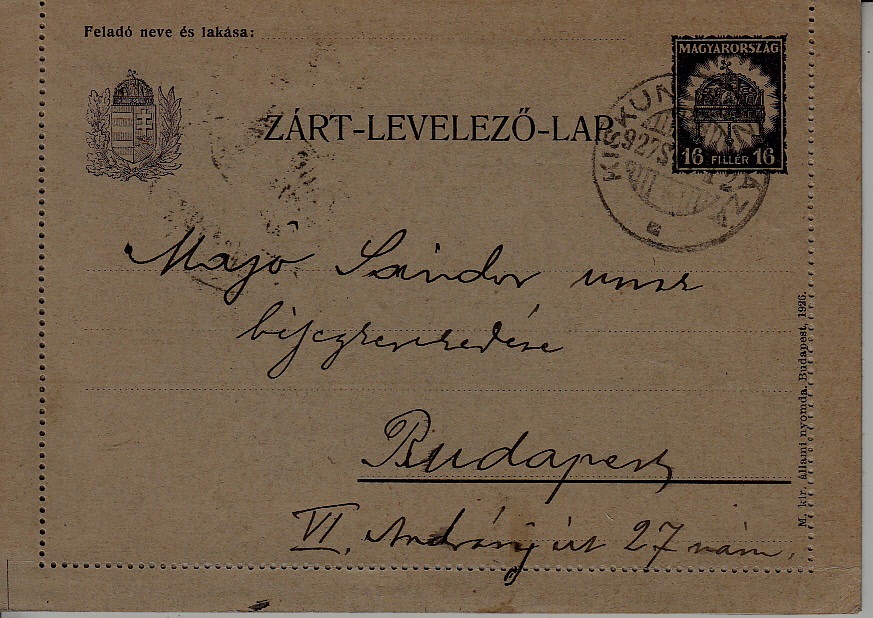 Feladó neve és lakása:
MAGYARORSZÁG
ZÁRT-LEVELEZŐ-LAP
16 FILLÉR 16
KISKUN
927
Majo Sándor
Budapest
VI. Andrássy út 27 szám.
M. kir. állami nyomda. Budapest, 1926.